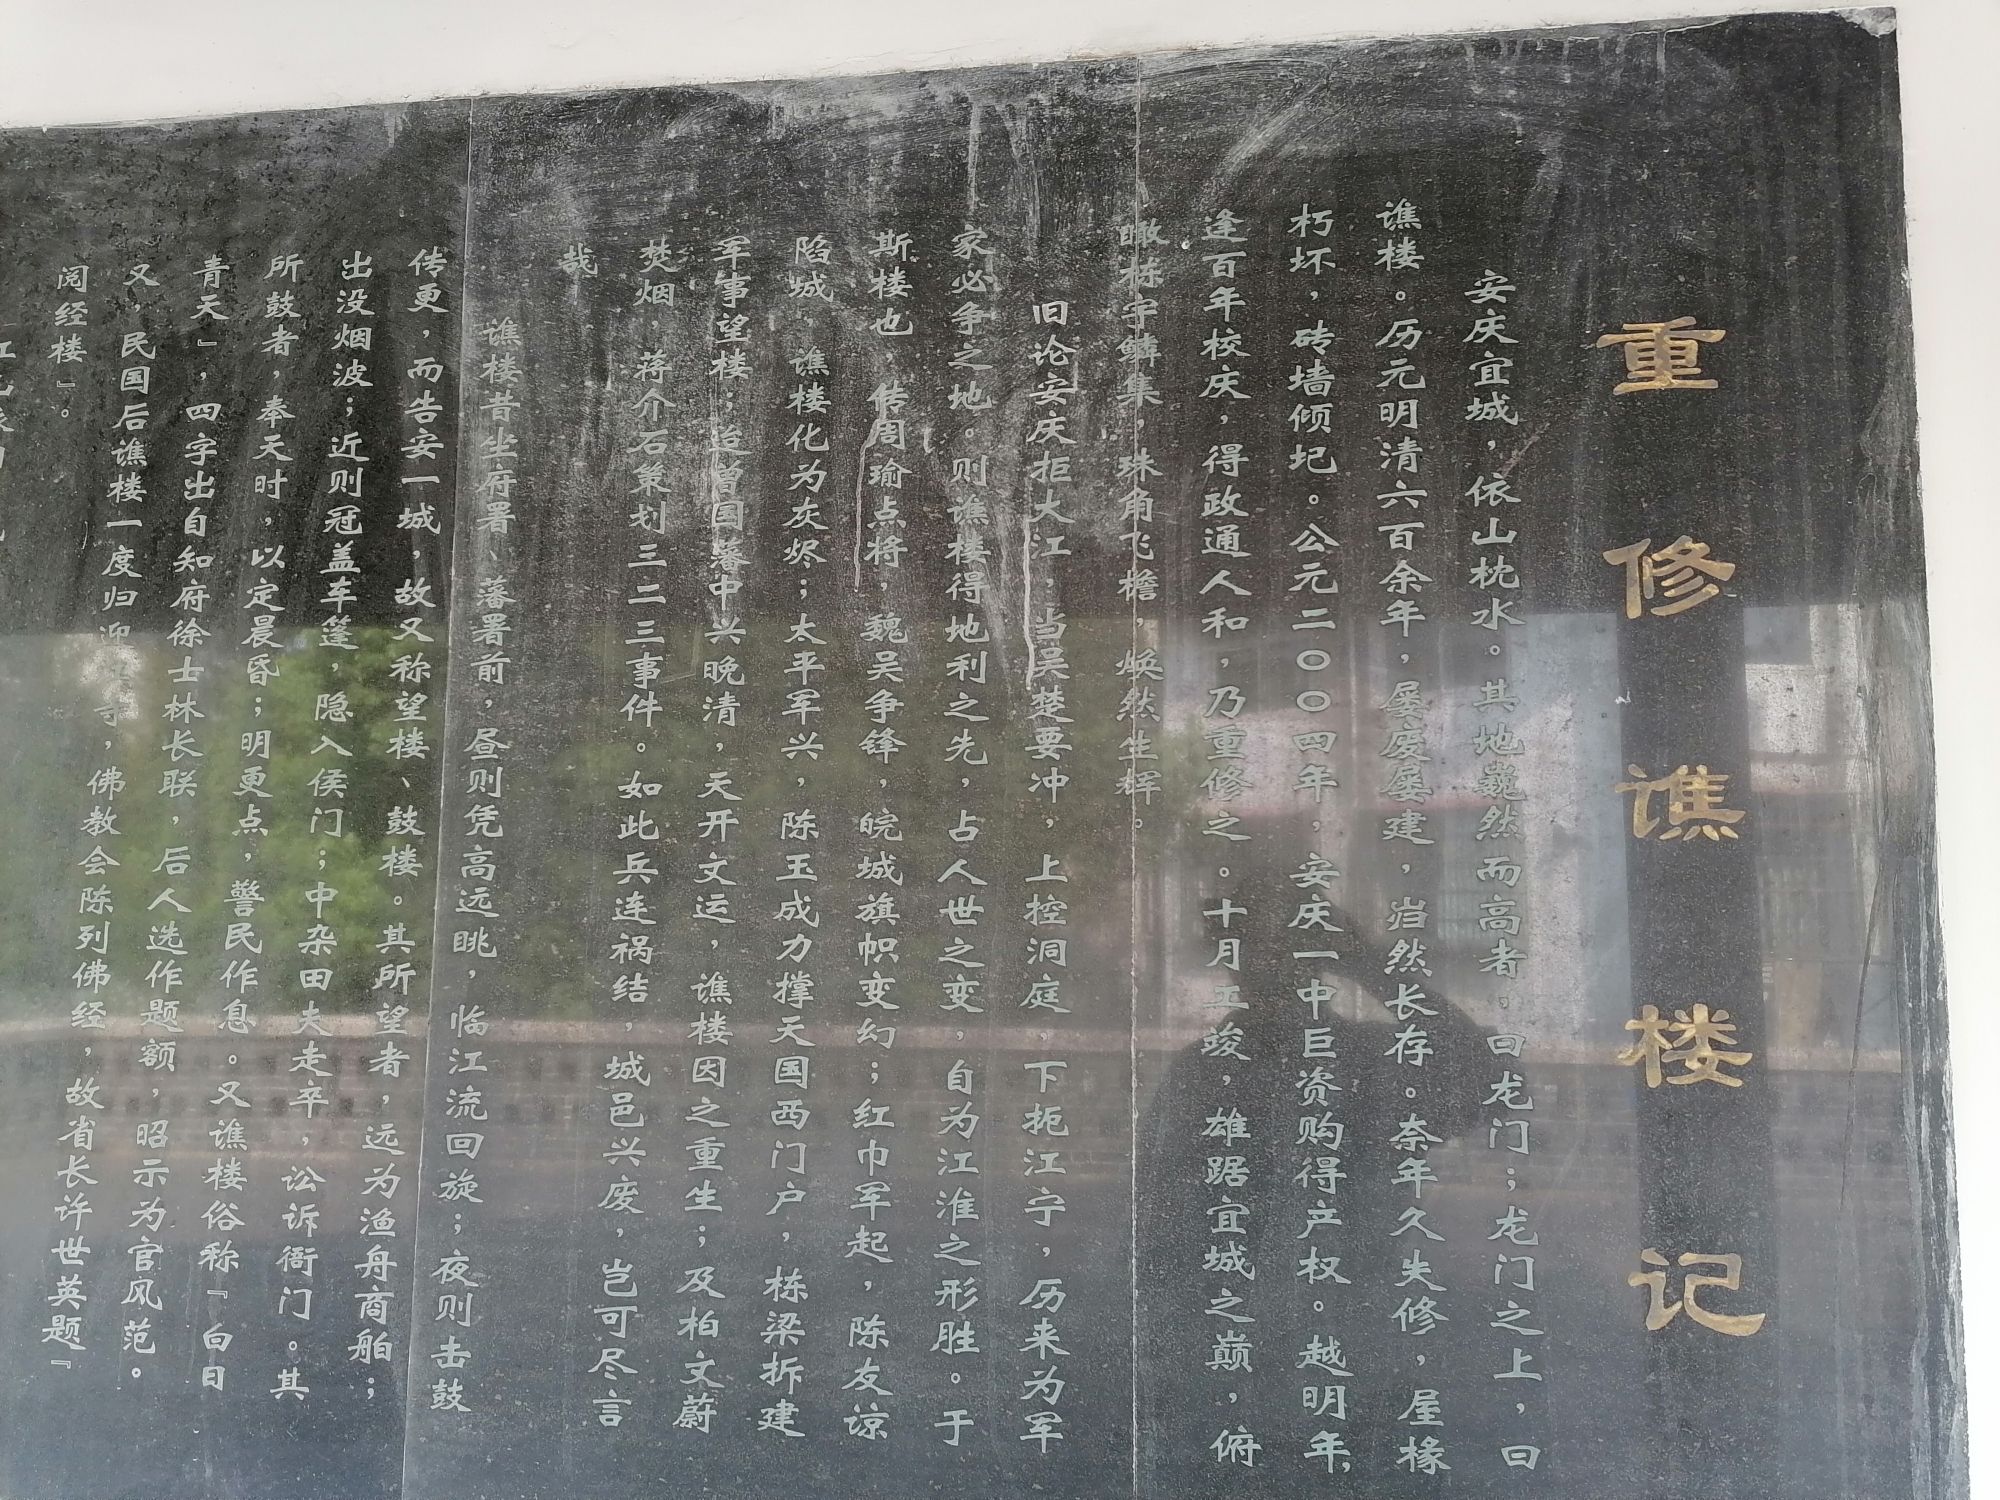 重修谯楼记
安庆宜城，依山枕水。其地巍然而高者，曰龙门；龙门之上，曰
谯楼。历元明清六百余年，屡废屡建，岿然长存。奈年久失修，屋椽
朽坏，砖墙倾圮。公元二〇〇四年，安庆一中巨资购得产权。越明年，
逢百年校庆，得政通人和，乃重修之。十月工竣，雄踞宜城之巅，俯
瞰栋宇鳞集，珠角飞檐，焕然生辉。
旧论安庆拒大江，当吴楚要冲，上控洞庭 下扼江宁，历来为军
家必争之地。则谯楼得地利之先，占人世之变，自为江淮之形胜。于
斯楼也，传周瑜点将，魏吴争锋，皖城旗帜变幻；红巾军起，陈友谅
陷城，谯楼化为灰烬；太平军兴，陈玉成力撑天国西门户，栋梁拆建
军事望楼；迨曾国藩中兴晚清，天开文运，谯楼因之重生；及柏文蔚
焚烟，蒋介石策划三二三事件。如此兵连祸结，城邑兴废，岂可尽言
哉
谯楼昔坐府署、藩署前，昼则凭高远眺，临江流回旋；夜则击鼓
传更，而告安一城，故又称望楼、鼓楼。其所望者，远为渔舟商舶；
出没烟波；近则冠盖车篷，隐入侯门；中杂田夫走卒，讼诉衙门。其
所鼓者，奉天时，以定晨昏；明更点，警民作息。又谯楼俗称『白日
青天』，四字出自知府徐士林长联，后人选作题额，昭示为官风范。
又，民国后谯楼一度归迎 寺，佛教会陈列佛经，故省长许世英题『
阅经楼』。